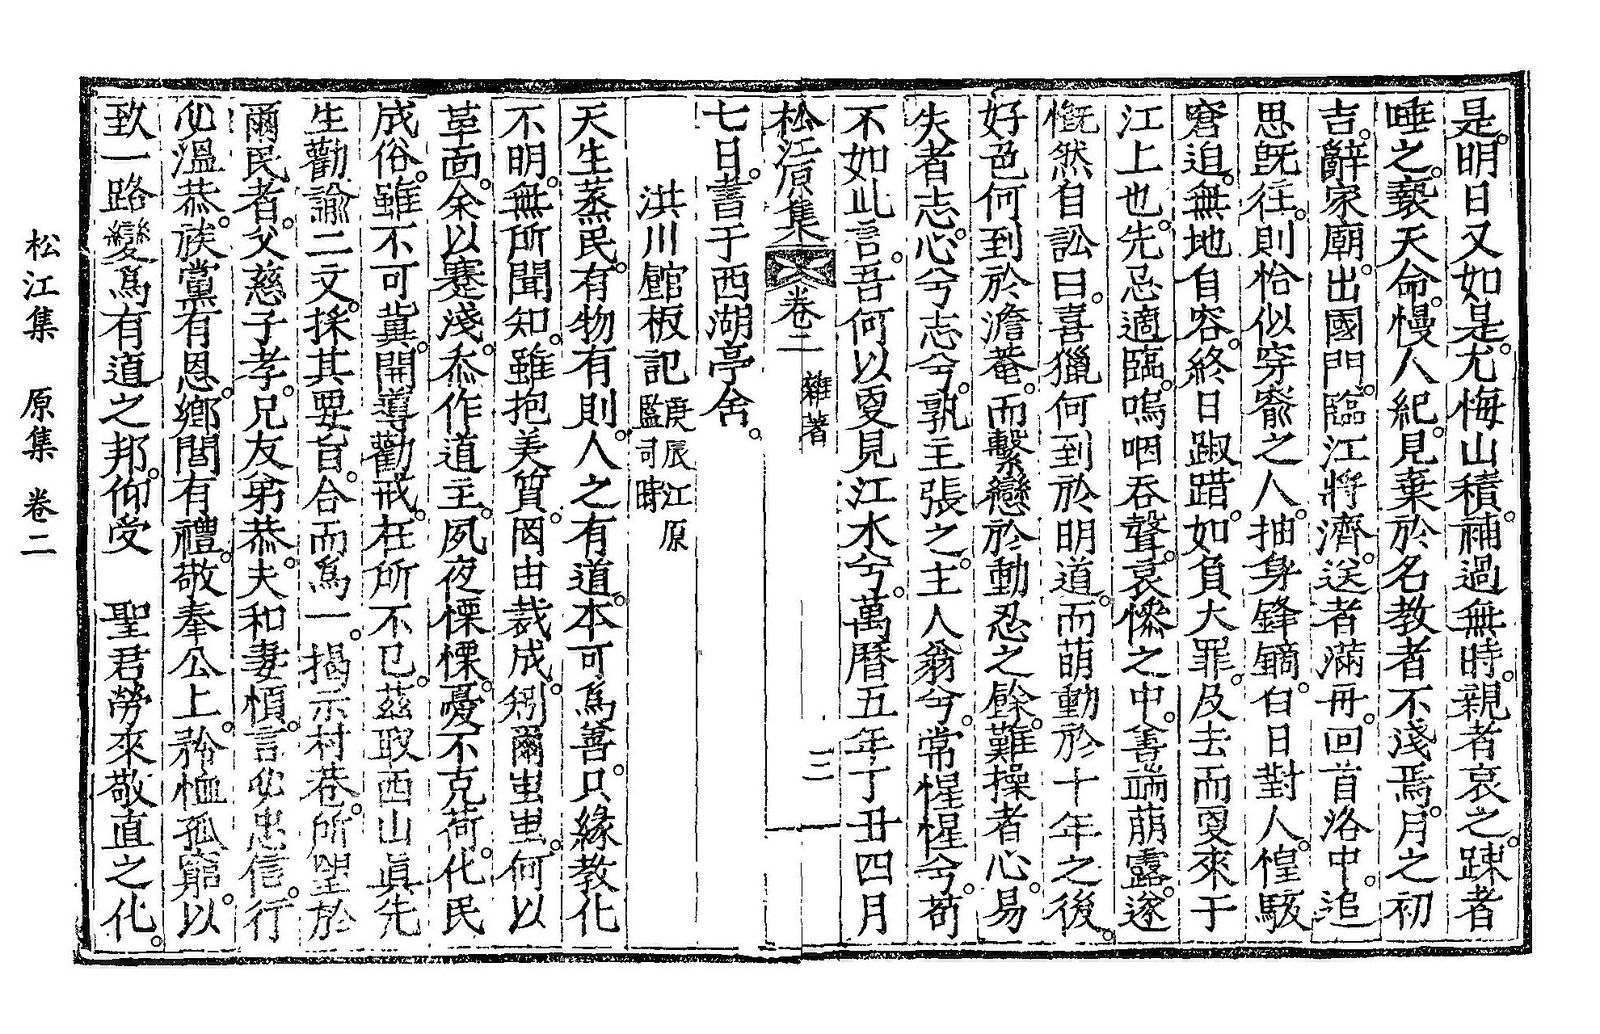 是。明日又如是。尤悔山積。補過無時。親者哀之。踈者
唾之。褻天命。慢人紀。見棄於名教者不淺焉。月之初
吉。辭家廟。出國門。臨江將濟。送者滿舟。回首洛中。追
思旣往。則恰似穿窬之人。抽身鋒鏑。白日對人。惶駭
窘迫。無地自容。終日踧踖。如負大罪。及去而更來于
江上也。先忌適臨。嗚咽吞聲。哀慘之中。善端萌露。遂
慨然自訟曰。喜獵何到於明道。而萌動於十年之後。
好色何到於澹菴。而繫戀於動忍之餘。難操者心。易
失者志。心兮志兮。孰主張之。主人翁兮。常惺惺兮。苟
不如此言。吾何以更見江水兮。萬曆五年丁丑四月
松江原集 卷二 雜著 三
七日。書于西湖亭舍。
洪川館板記 庚辰江原監司時
天生蒸民。有物有則。人之有道。本可爲善。只緣教化
不明。無所聞知。雖抱美質。罔由裁成。矧爾蚩蚩。何以
革面。余以蹇淺。忝作道主。夙夜慄慄。憂不克荷。化民
成俗。雖不可冀。開導勸戒。在所不已。茲取西山眞先
生勸諭二文。採其要旨。合而爲一。揭示村巷。所望於
爾民者。父慈子孝。兄友弟恭。夫和妻順。言必忠信。行
必溫恭。族黨有恩。鄕閭有禮。敬奉公上。矜恤孤窮。以
致一路變爲有道之邦。仰受 聖君勞來敬直之化。
松江集 原集 卷二